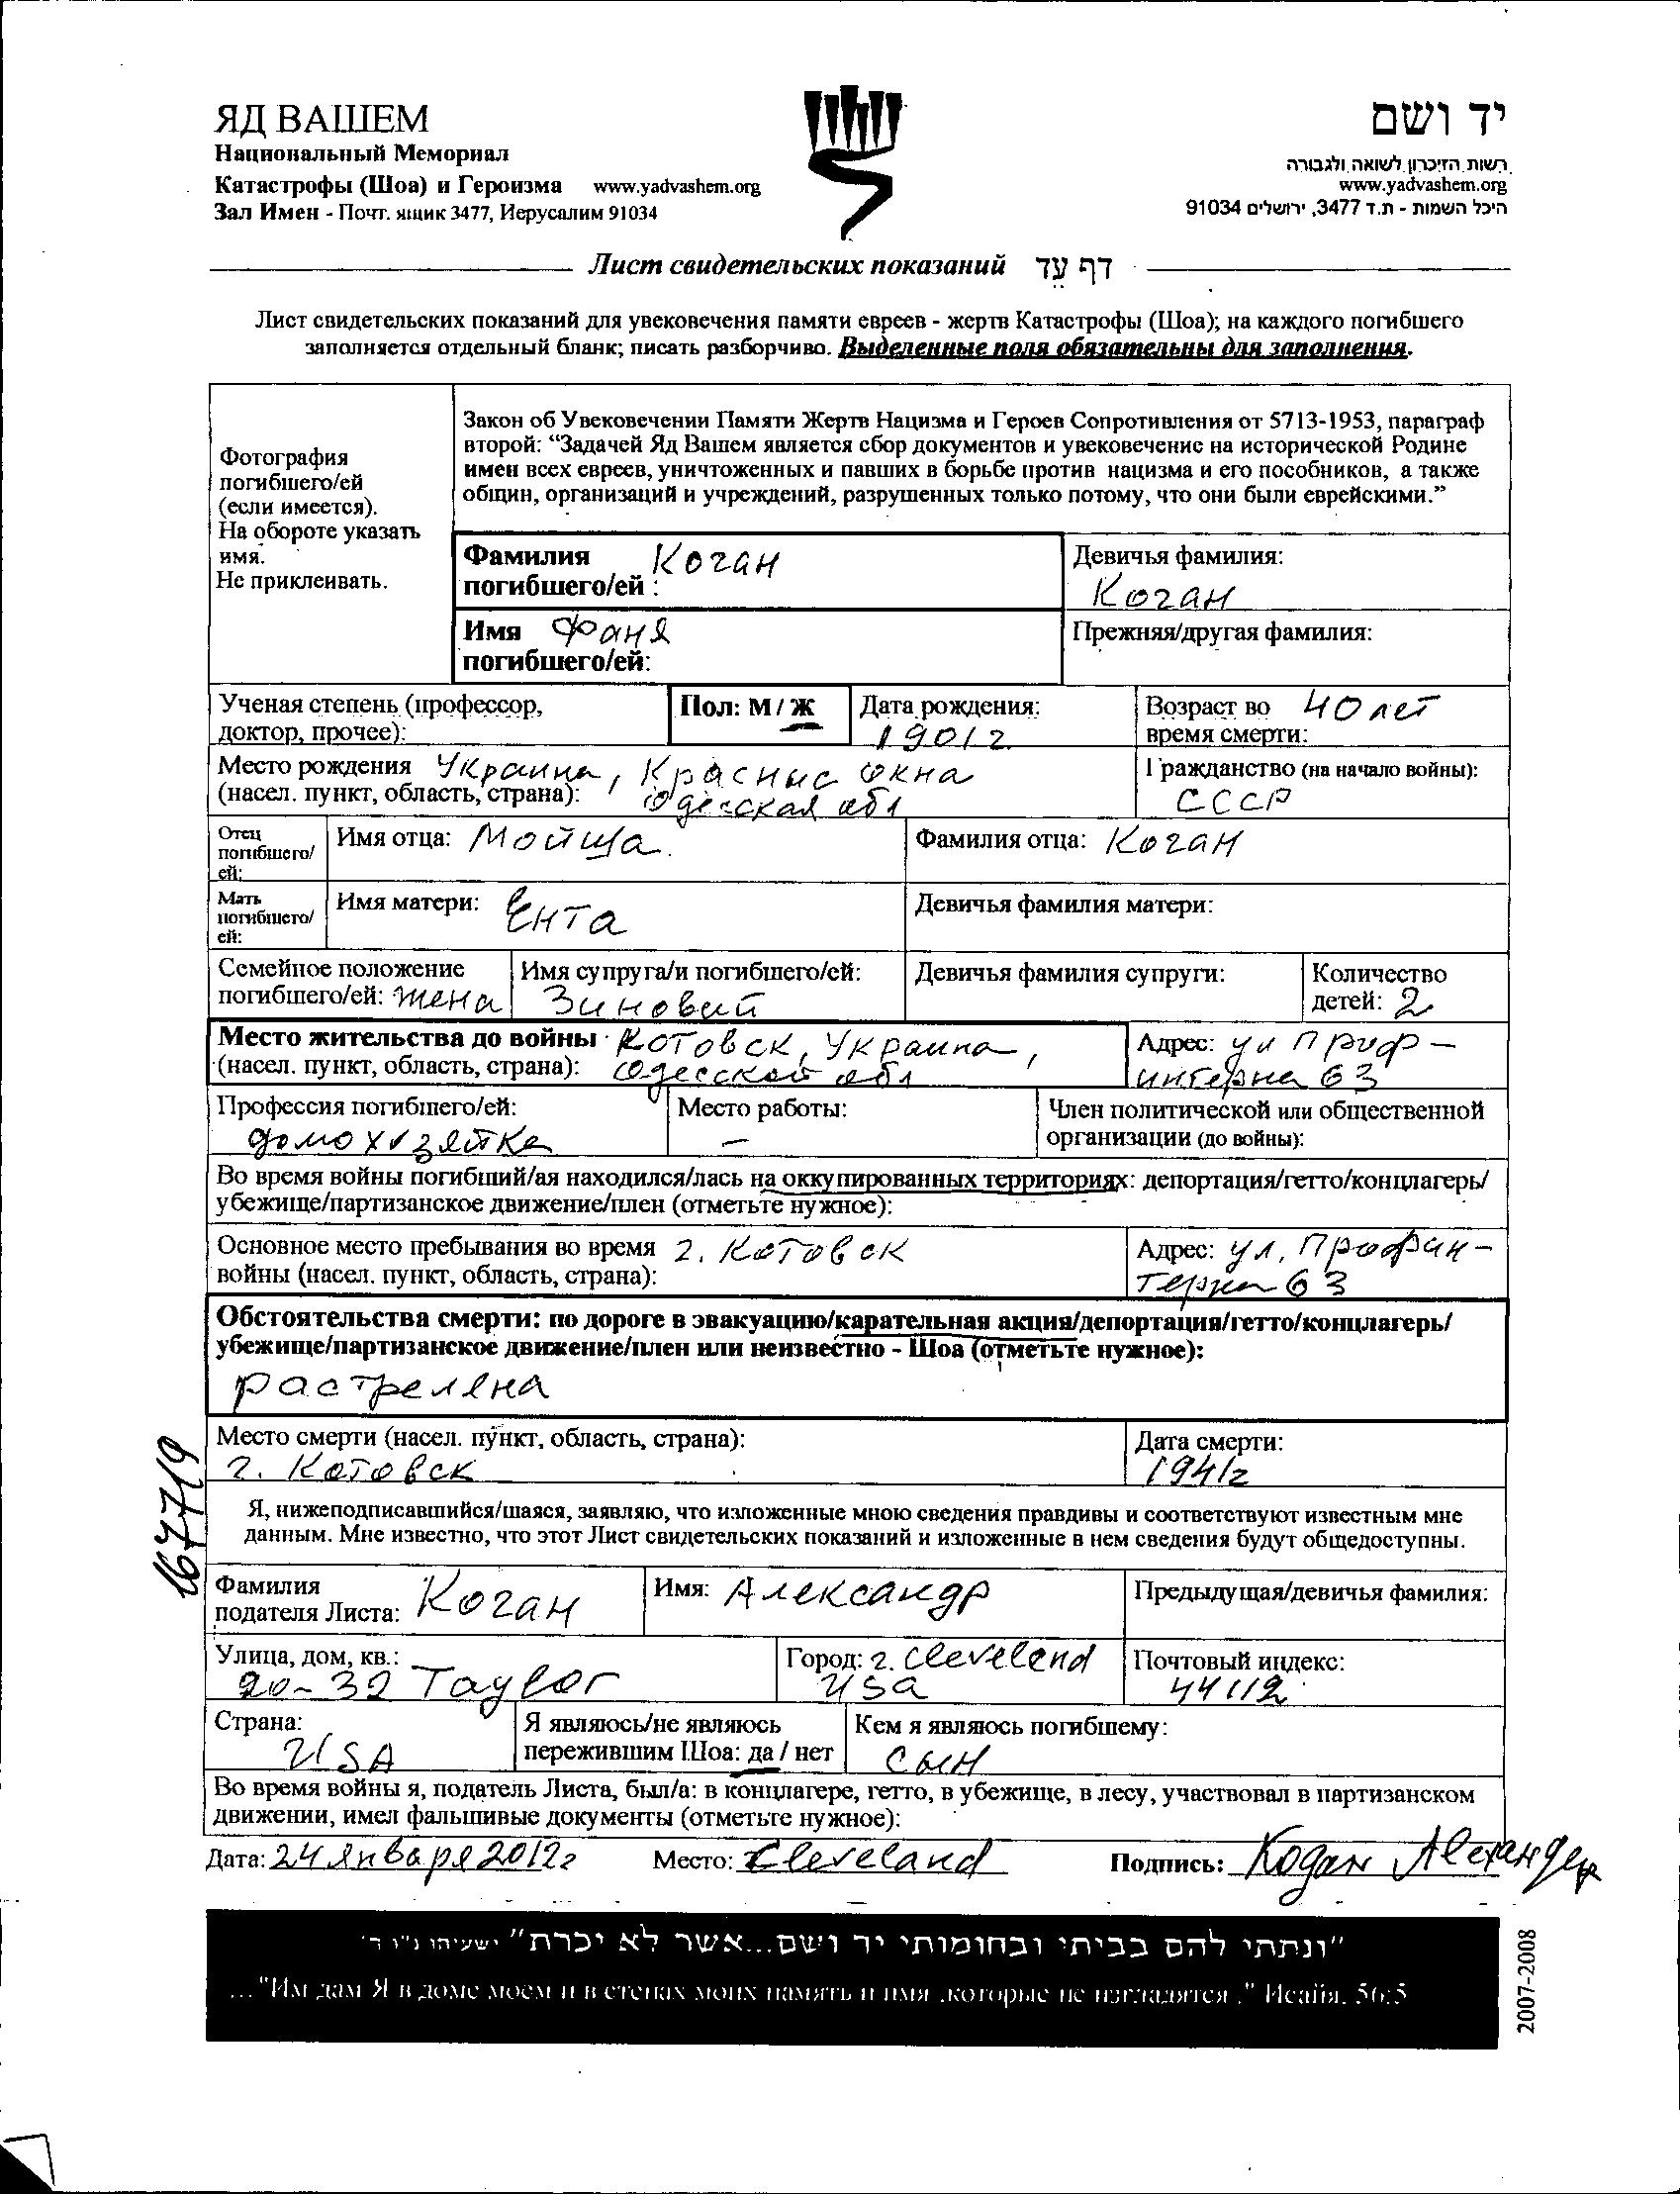 ЯД ВАШЕМ
Национальный Мемориал
Катастрофы (Шоа) и Героизма www.yadvashem.org
Зал Имен - Почт. ящик 3477, Иерусалим 91034
יד ושם
רשות הזיכרון לשואה ולגבורה
www.yadvashem.org
היכל השמות - ת.ד 3477, ירושלים 91034
Лист свидетельских показаний דף עד
Лист свидетельских показаний для увековечения памяти евреев - жертв Катастрофы (Шоа); на каждого погибшего
заполняется отдельный бланк; писать разборчиво. Выделенные поля обязательны для заполнения.
Фотография
погибшего/ей
(если имеется).
На обороте указать
имя.
Не приклеивать.
Закон об Увековечении Памяти Жертв Нацизма и Героев Сопротивления от 5713-1953, параграф
второй: “Задачей Яд Вашем является сбор документов и увековечение на исторической Родине
имен всех евреев, уничтоженных и павших в борьбе против нацизма и его пособников, а также
общин, организаций и учреждений, разрушенных только потому, что они были еврейскими.”
Фамилия Коган
погибшего/ей :
Девичья фамилия:
Коган
Имя Фаня
погибшего/ей:
Прежняя/другая фамилия:
Ученая степень (профессор,
доктор, прочее):
Пол: М / Ж
Дата рождения:
1901г
Возраст во 40 лет
время смерти:
Место рождения Украина, Красные окна
(насел. пункт, область, страна): Одесская обл
Гражданство (на начало войны):
СССР
Отец
погибшего/
ей:
Имя отца: Мойша.
Фамилия отца: Коган
Мать
погибшего/
ей:
Имя матери: Ента
Девичья фамилия матери:
Семейное положение
погибшего/ей: жена
Имя супруга/и погибшего/ей:
Зиновий
Девичья фамилия супруги:
Количество
детей: 2
Место жительства до войны Котовск, Украина,
(насел. пункт, область, страна): Одесской обл
Адрес: ул Проф-
интерна 63
Профессия погибшего/ей:
домохозяйка
Место работы:
–
Член политической или общественной
организации (до войны):
Во время войны погибший/ая находился/лась на оккупированных территориях: депортация/гетто/концлагерь/
убежище/партизанское движение/плен (отметьте нужное):
Основное место пребывания во время г. Котовск
войны (насел. пункт, область, страна):
Адрес: ул, Профин-
терна 63
Обстоятельства смерти: по дороге в эвакуацию/карательная акция/депортация/гетто/концлагерь/
убежище/партизанское движение/плен или неизвестно - Шоа (отметьте нужное):
растреляна
Место смерти (насел. пункт, область, страна):
г. Котовск
Дата смерти:
1941г
Я, нижеподписавшийся/шаяся, заявляю, что изложенные мною сведения правдивы и соответствуют известным мне
данным. Мне известно, что этот Лист свидетельских показаний и изложенные в нем сведения будут общедоступны.
167719
Фамилия
подателя Листа: Коган
Имя: Александр
Предыдущая/девичья фамилия:
Улица, дом, кв.:
20-32 Taylor
Город: г. Cleveland
USA
Почтовый индекс:
44112
Страна:
USA
Я являюсь/не являюсь
пережившим Шоа: да / нет
Кем я являюсь погибшему:
сын
Во время войны я, податель Листа, был/а: в концлагере, гетто, в убежище, в лесу, участвовал в партизанском
движении, имел фальшивые документы (отметьте нужное):
Дата: 24 января 2012г Место: Cleveland Подпись: Коган
"ונתתי להם בביתי ובחומותי יד ושם...אשר לא יכרת" ישעיהו נ"ו ה'
..."Им дам Я в доме моем и в стенах моих память и имя ,которые не изгладятся ." Исайя. 56:5
2007-2008